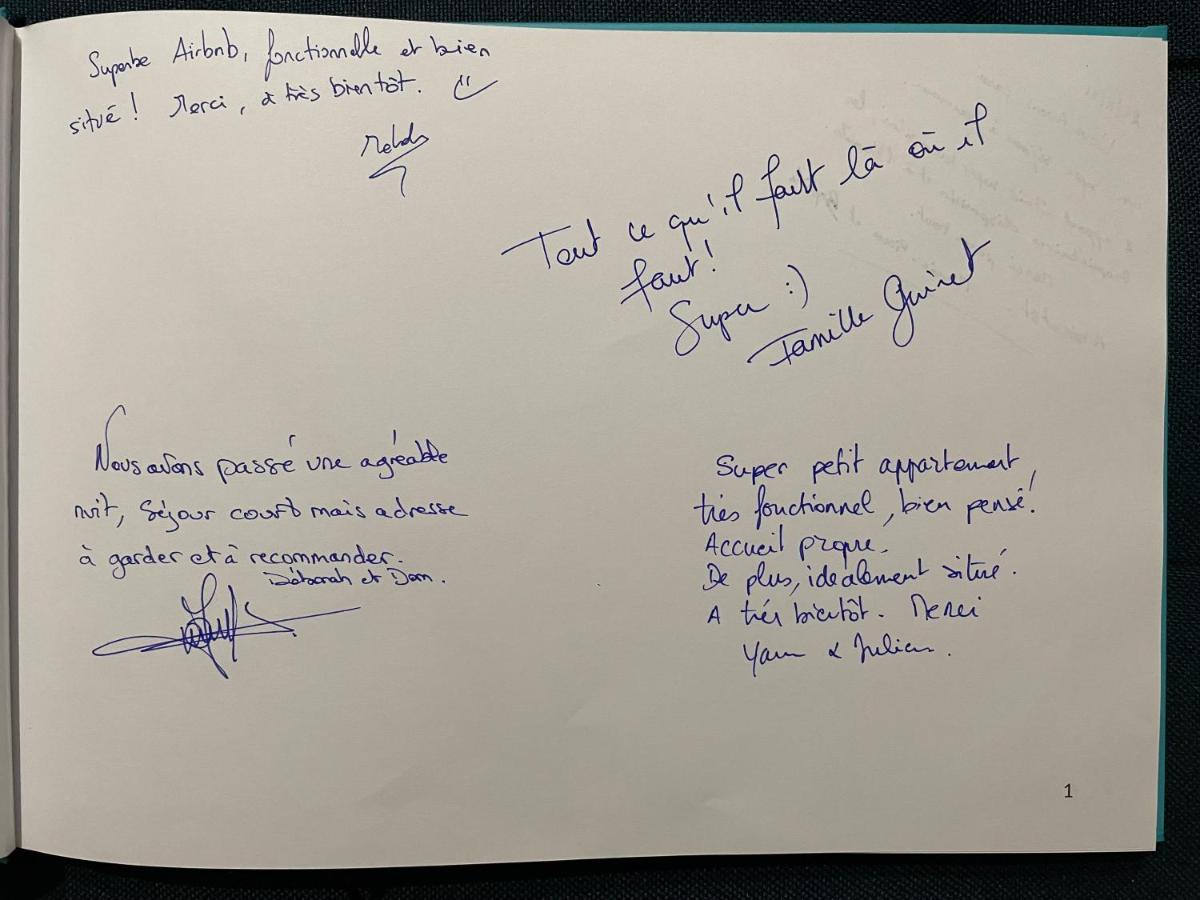 Superbe Airbnb, fonctionnelle et bien
situé ! Merci, à très bientôt.
Tout ce qu'il faut là où il
faut !
Super :)
Famille Guinet
Nous avons passé une agréable
nuit, Séjour court mais adresse
à garder et à recommander.
Déborah et Dom.
Super petit appartement,
très fonctionnel, bien pensé !
Accueil propre.
De plus, idéalement situé.
A très bientôt. Merci
Yann & Julien.
1